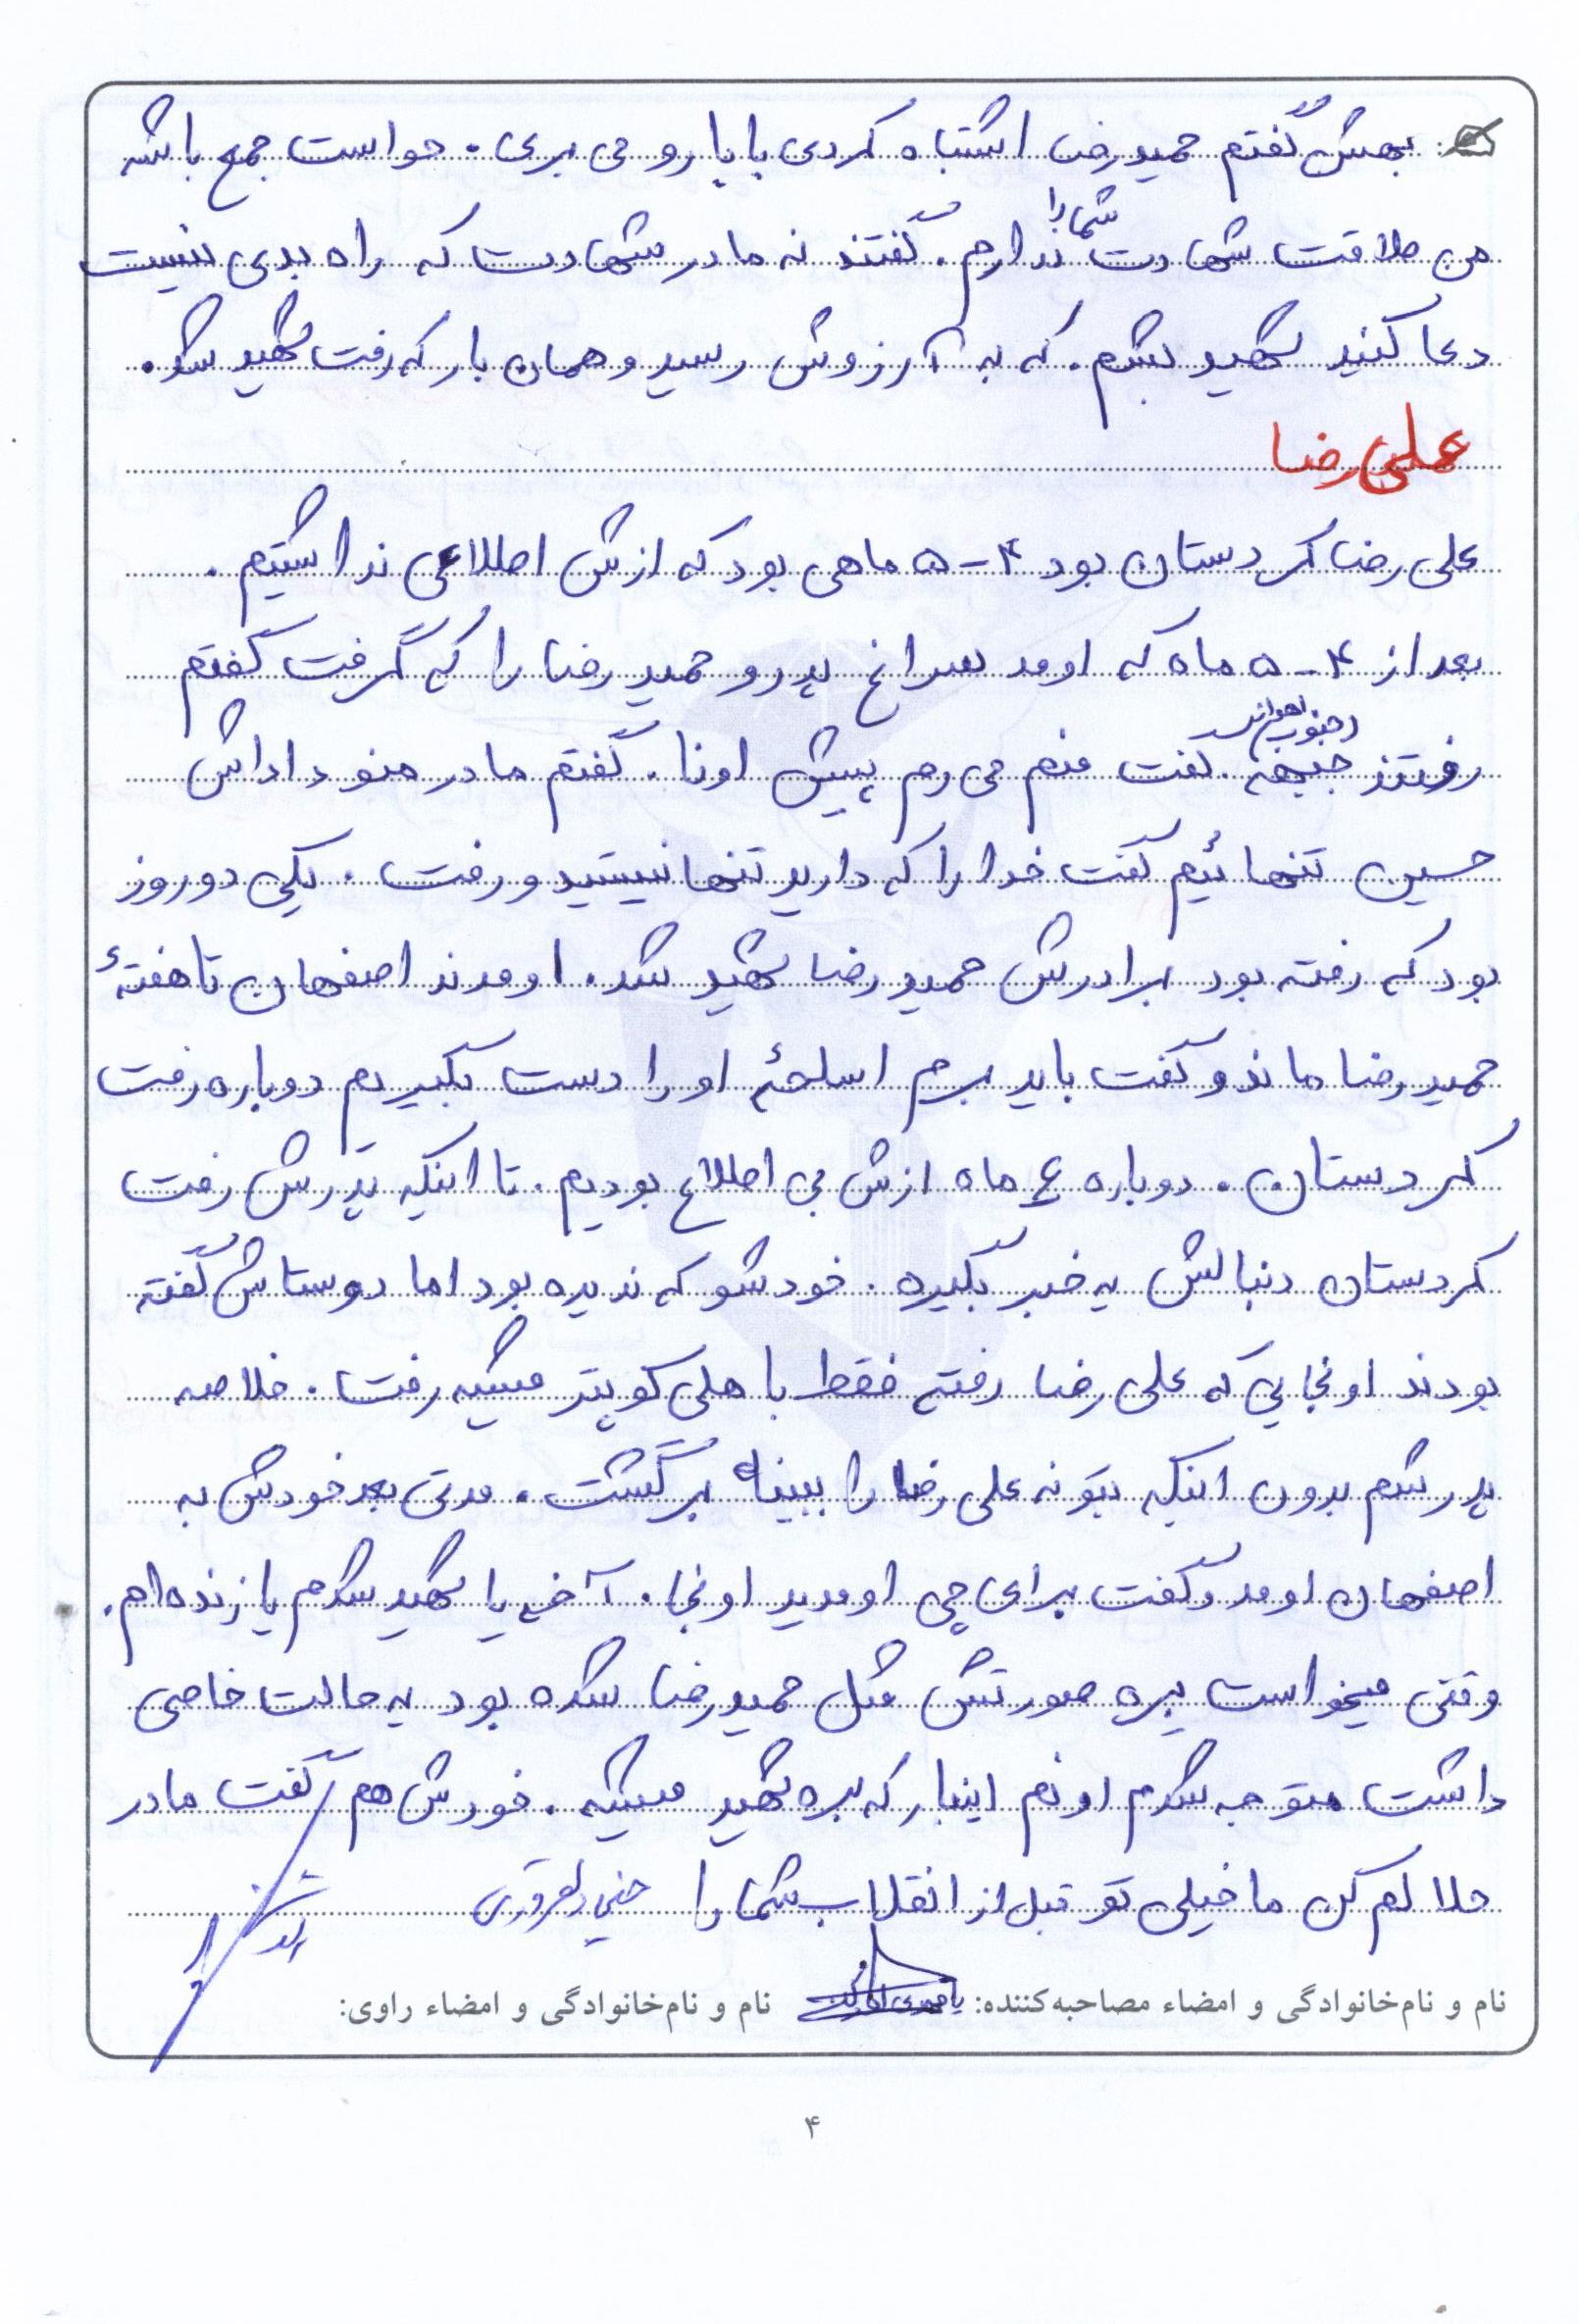 بهش گفتم حمیدرضا اشتباه کردی بابا رو می بری. حواست جمع باشه
من طاقت شهادت شما را ندارم. گفتند نه مادر شهادت که راه بدی نیست
دعا کنید شهید بشم. که به آرزوش رسید و همان بار که رفت شهید شد.
علی رضا
علی رضا کردستان بود ۴-۵ ماهی بود که ازش اطلاعی نداشتیم.
بعد از ۴-۵ ماه که اومد سراغ پدر و حمید رضا را که گرفت گفتم
رفتند جبهه (جنوب اهواز) گفت منم می رم پیش اونا. گفتم مادر منو داداش
حسین تنهائیم گفت خدا را که دارید تنها نیستید و رفت. یکی دو روز
بود که رفته بود برادرش حمید رضا شهید شد. اومدند اصفهان تا هفتهٔ
حمید رضا ماند و گفت باید برم اسلحهٔ او را دست بگیرم دوباره رفت
کردستان. دوباره ۶ ماه ازش بی اطلاع بودیم. تا اینکه پدرش رفت
کردستان دنبالش یه خبر بگیره. خودشو که ندیده بود اما دوستاش گفته
بودند اونجایی که علی رضا رفته فقط با هلی کوپتر میشه رفت. خلاصه
پدرشم بدون اینکه بتونه علی رضا را ببینه برگشت. مدتی بعد خودش به
اصفهان اومد و گفت برای چی اومدید اونجا. آخه یا شهید شدم یا زنده ام.
وقتی میخواست بره صورتش مثل حمید رضا شده بود یه حالت خاصی
داشت متوجه شدم اونم اینبار که بره شهید میشه. خودش هم گفت مادر
حلالم کن ما خیلی تو قبل از انقلاب شما را
نام و نام‌خانوادگی و امضاء مصاحبه‌کننده: نام و نام‌خانوادگی و امضاء راوی:
۴